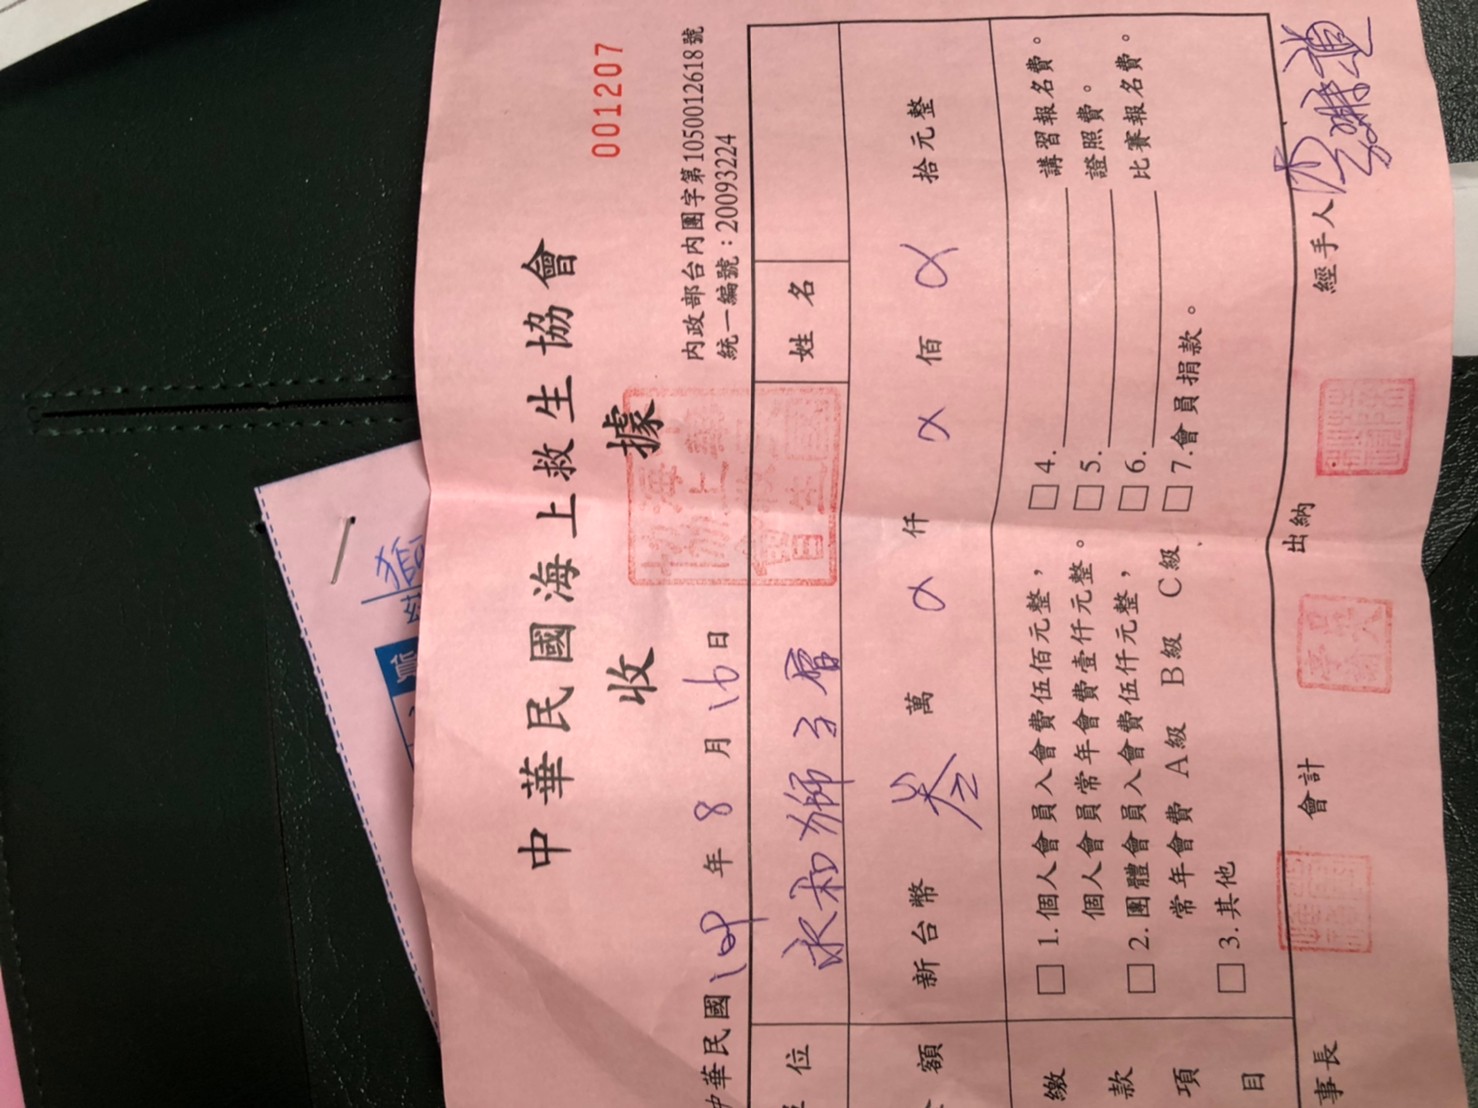 中華民國海上救生協會
001207
收據
內政部台內團字第1050012618號
統一編號：20093224
中華民國 109 年 8 月 16 日
位 永和獅子會 姓名
額 新台幣 叁 萬 α 仟 α 佰 α 拾元整
繳款項目
□ 1.個人會員入會費伍佰元整，
個人會員常年會費壹仟元整。
□ 2.團體會員入會費伍仟元整，
常年會費 A級 B級 C級
□ 3.其他
□ 4.＿＿＿講習報名費。
□ 5.＿＿＿證照費。
□ 6.＿＿＿比賽報名費。
□ 7.會員捐款。
事長 會計 出納 經手人